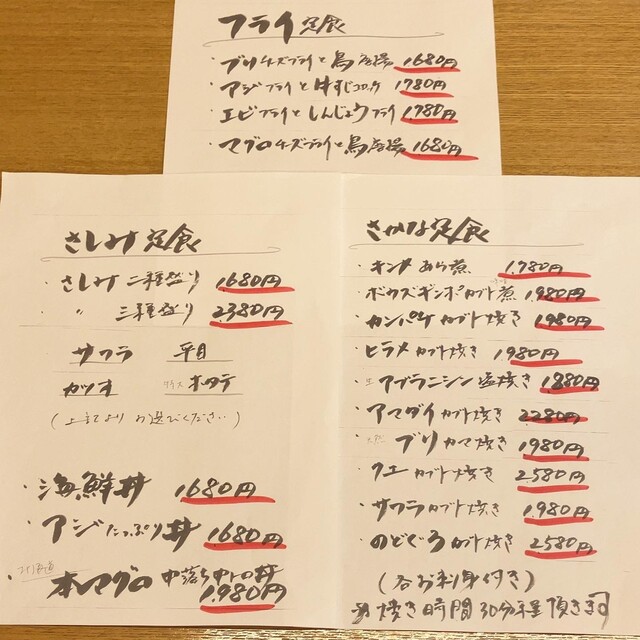 フライ定食
・ブリチーズフライと鳥唐揚 1680円
・アジフライと牛すじコロッケ 1780円
・エビフライとしんじょうフライ 1,780円
・マグロチーズフライと鳥唐揚 1680円
さしみ定食
・さしみ二種盛り 1680円
・〃 三種盛り 2380円
サワラ 平目
カツオ ホタテ
(上記よりお選びください)
・海鮮丼 1680円
・アジたっぷり丼 1680円
・本マグロ中落ち中トロ丼
1,980円
さかな定食
・キンメあら煮 1,780円
・ボウズギンポカブト煮 1,980円
・カンパチカブト焼き 1980円
・ヒラメカブト焼き 1980円
アブラニシン塩焼き 1880円
・アマダイカブト焼き 2280円
ブリカマ焼き 1980円
・クエカブト焼き 2,580円
・サワラカブト焼き 1,980円
・のどぐろカブト焼き 2580円
(各お刺身付き)
焼き時間30分程頂きます